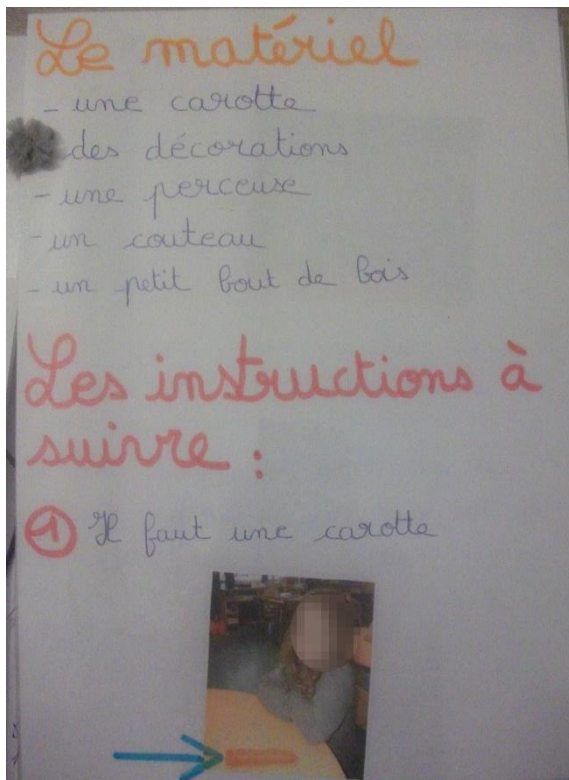 Le matériel
- une carotte
- des décorations
- une perceuse
- un couteau
- un petit bout de bois
Les instructions à
suivre :
1 Il faut une carotte